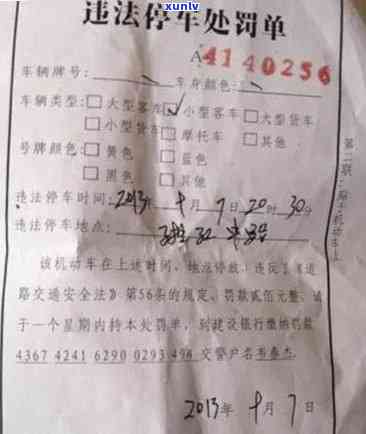 违法停车处罚单
A4140256
车辆牌号: 车身颜色:
车辆类型: □大型客车 ☑小型客车 □大型货车
□小型货车 □摩托车 □其他
号牌颜色: □黄色 □蓝色
□黑色 □其他
违法停车时间: 2013年 十月 7日 20时 30分
违法停车地点:
该机动车在上述时间、地点停放,违反了《道
路交通安全法》第56条的规定。罚款贰佰元整。请
于一个星期内持本处罚单,到建设银行缴纳罚款
4367 4241 6290 0293 498 交警户名韦泰杰
2013年 十月 7日
第二联
xunlv